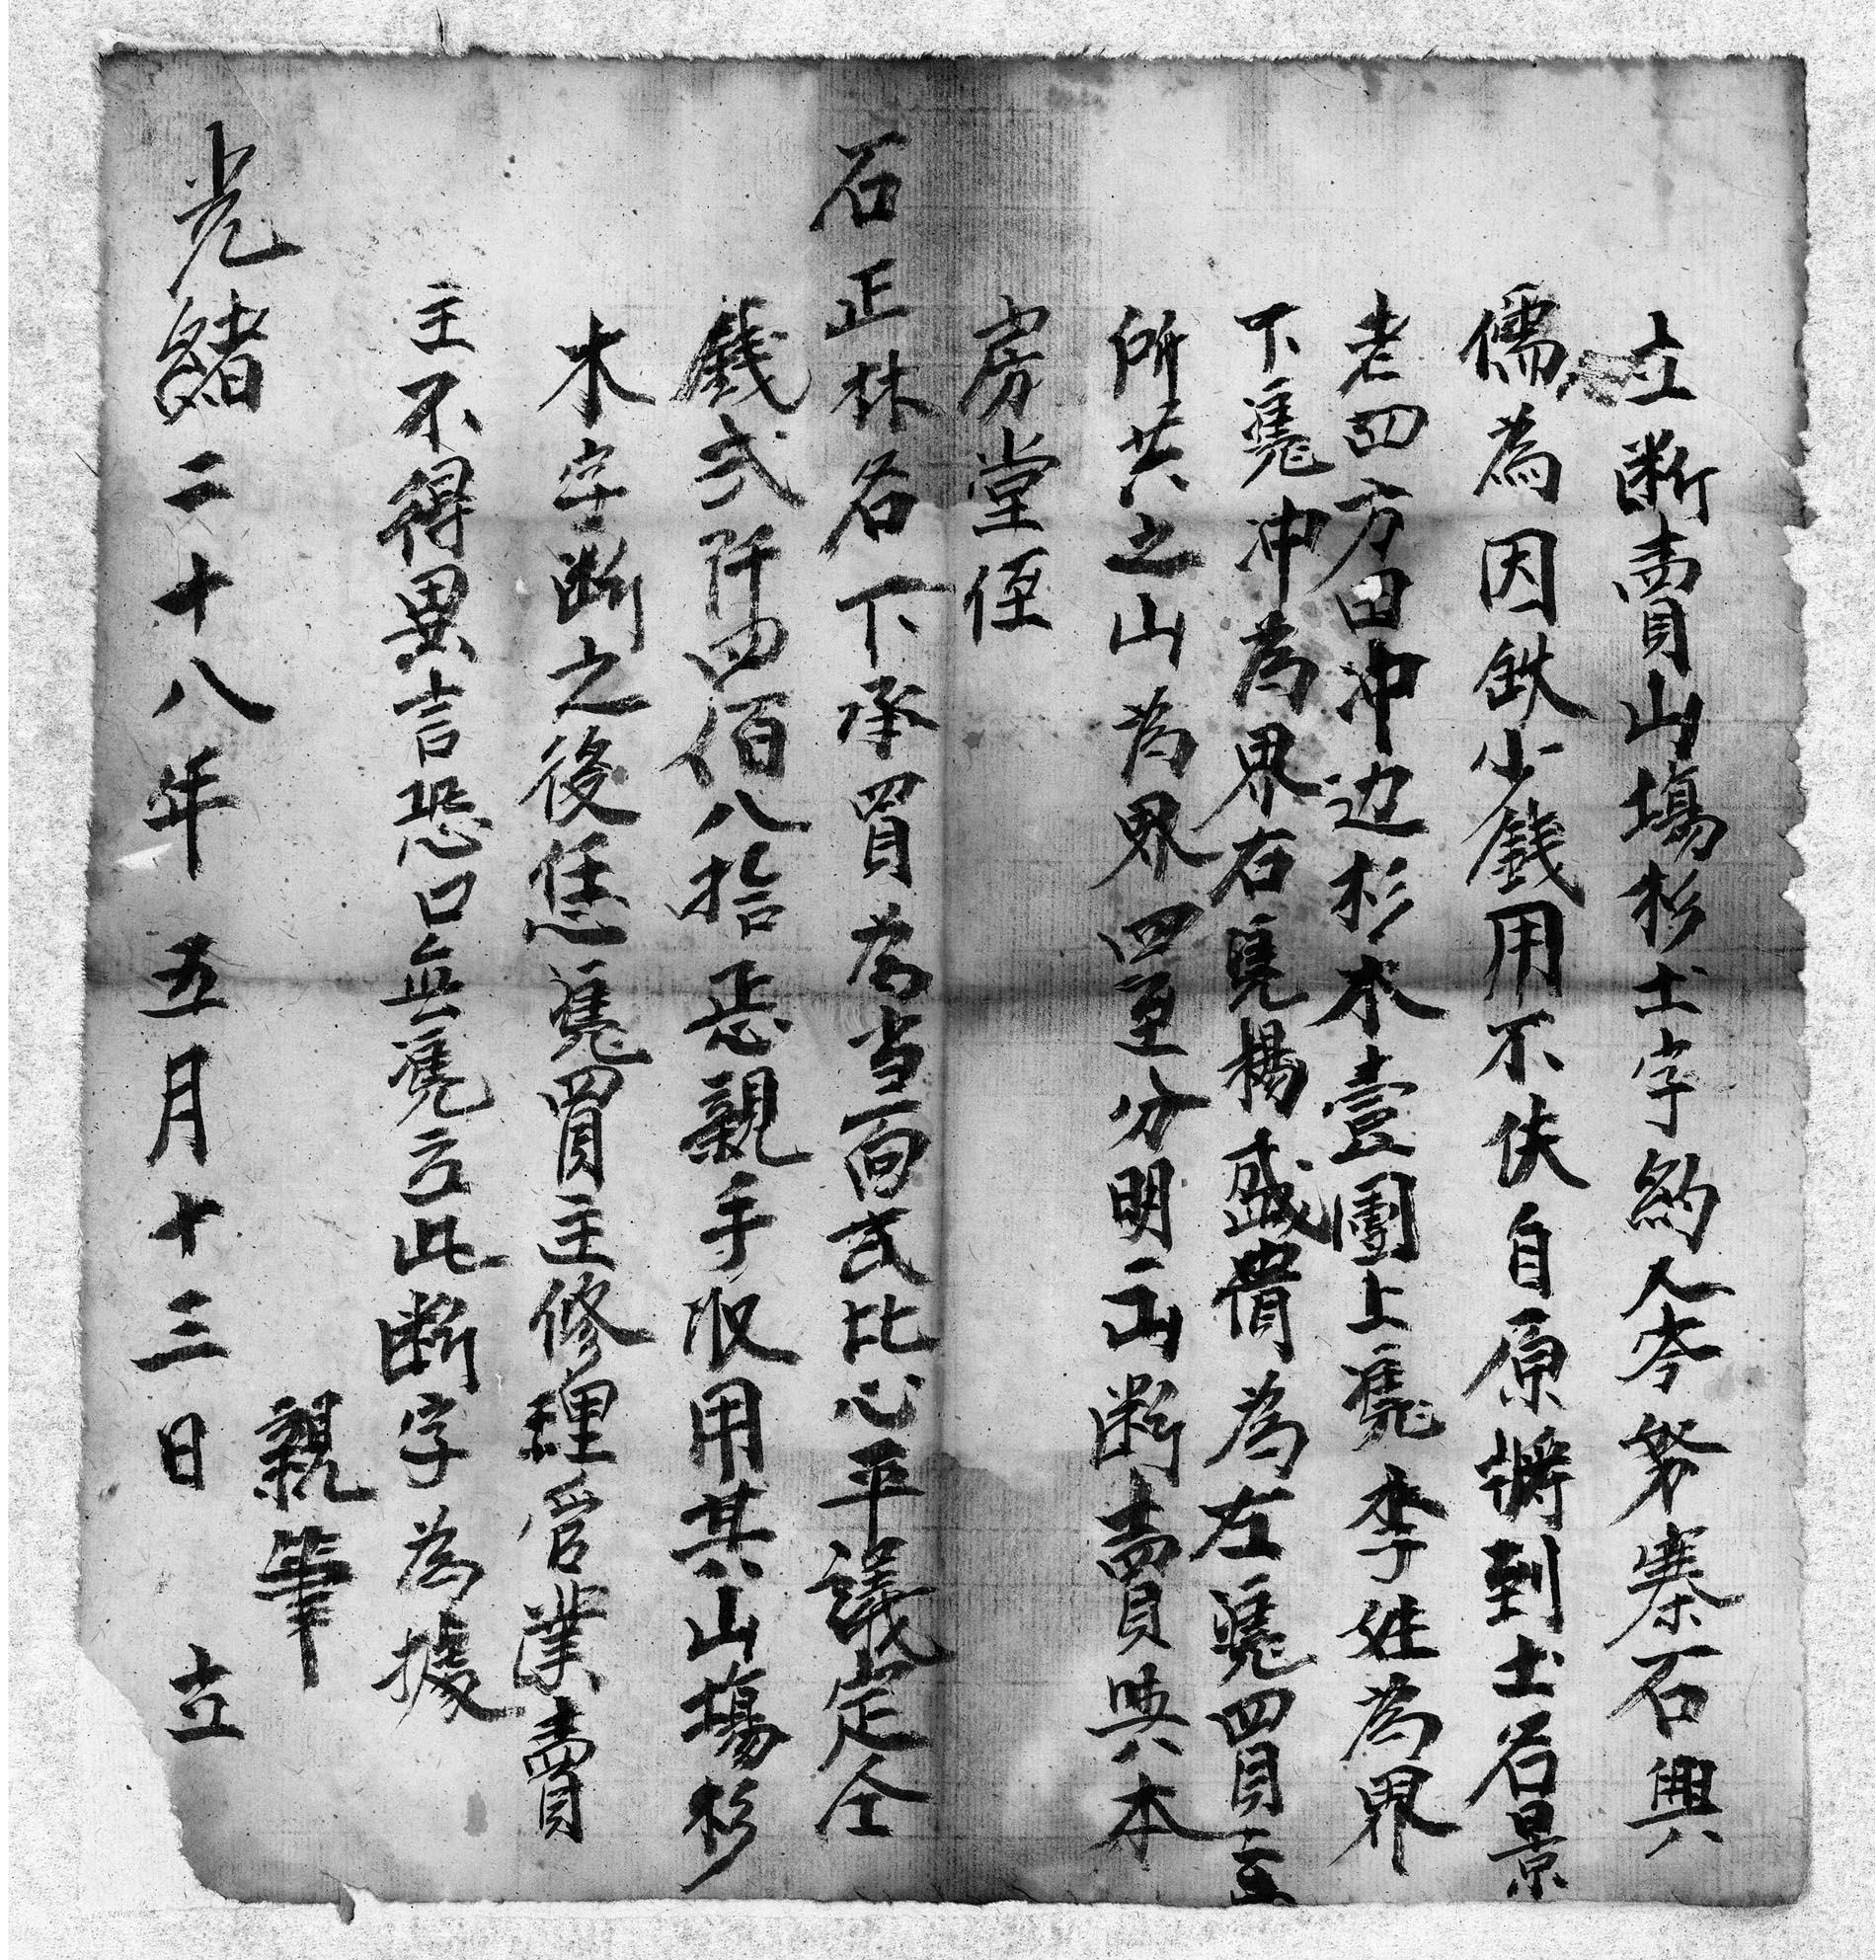 立断賣山塲杉土字約人岑努寨石興
儒為因缺少錢用不伕自原將到土名景
老四方田冲边杉木壹團上凴李姓為界
下凴冲為界右凴楊盛貴為左凴買主
所共之山為界四至分明二山断賣與本
房堂侄
石正林名下承買為当面弍比心平議定仝
錢弍阡四佰八拾正親手收用其山塲杉
木字断之後恁凴買主修理管業賣
主不得異言恐口無凴立此断字為據
親筆
光緒二十八年五月十三日 立